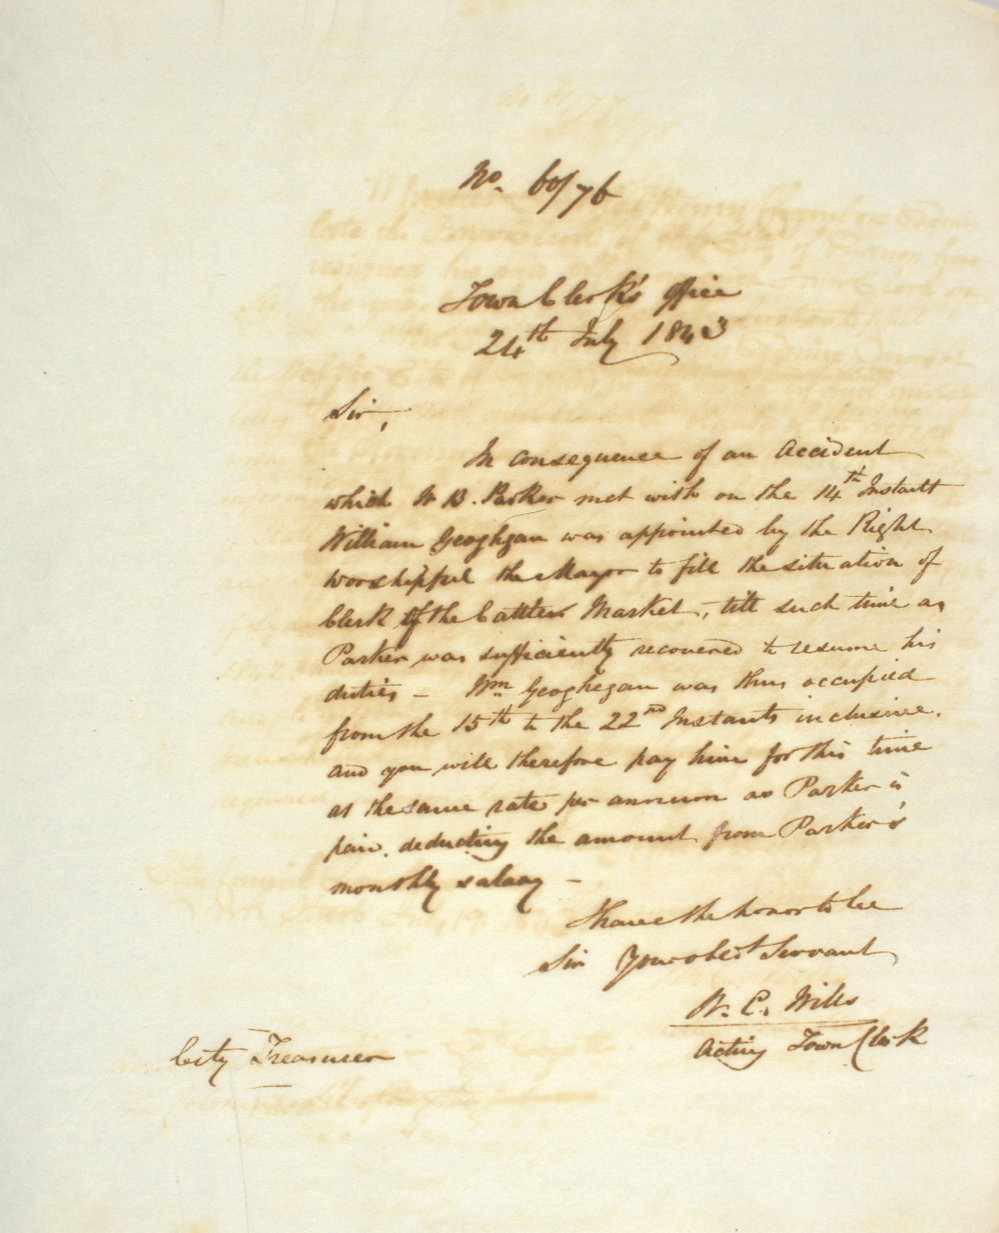 No. 60/76
Town Clerk's Office
24th July 1843
Sir,
In consequence of an Accident
which W B. Parker met with on the 14th Instant
William Geoghgan was appointed by the Right
Worshipful the Mayor to fill the situation of
Clerk of the Cattle Market, till such time as
Parker was sufficiently recovered to resume his
duties - Wm Geoghegan was thus occupied
from the 15th to the 22nd Instant inclusive.
and you will therefore pay him for this time
at the same rate per annum as Parker is
paid. deducting the amount from Parker's
monthly salary -
I have the honor to be
Sir Your obedt Servant
W. C. Wills
Acting Town Clerk
City Treasurer